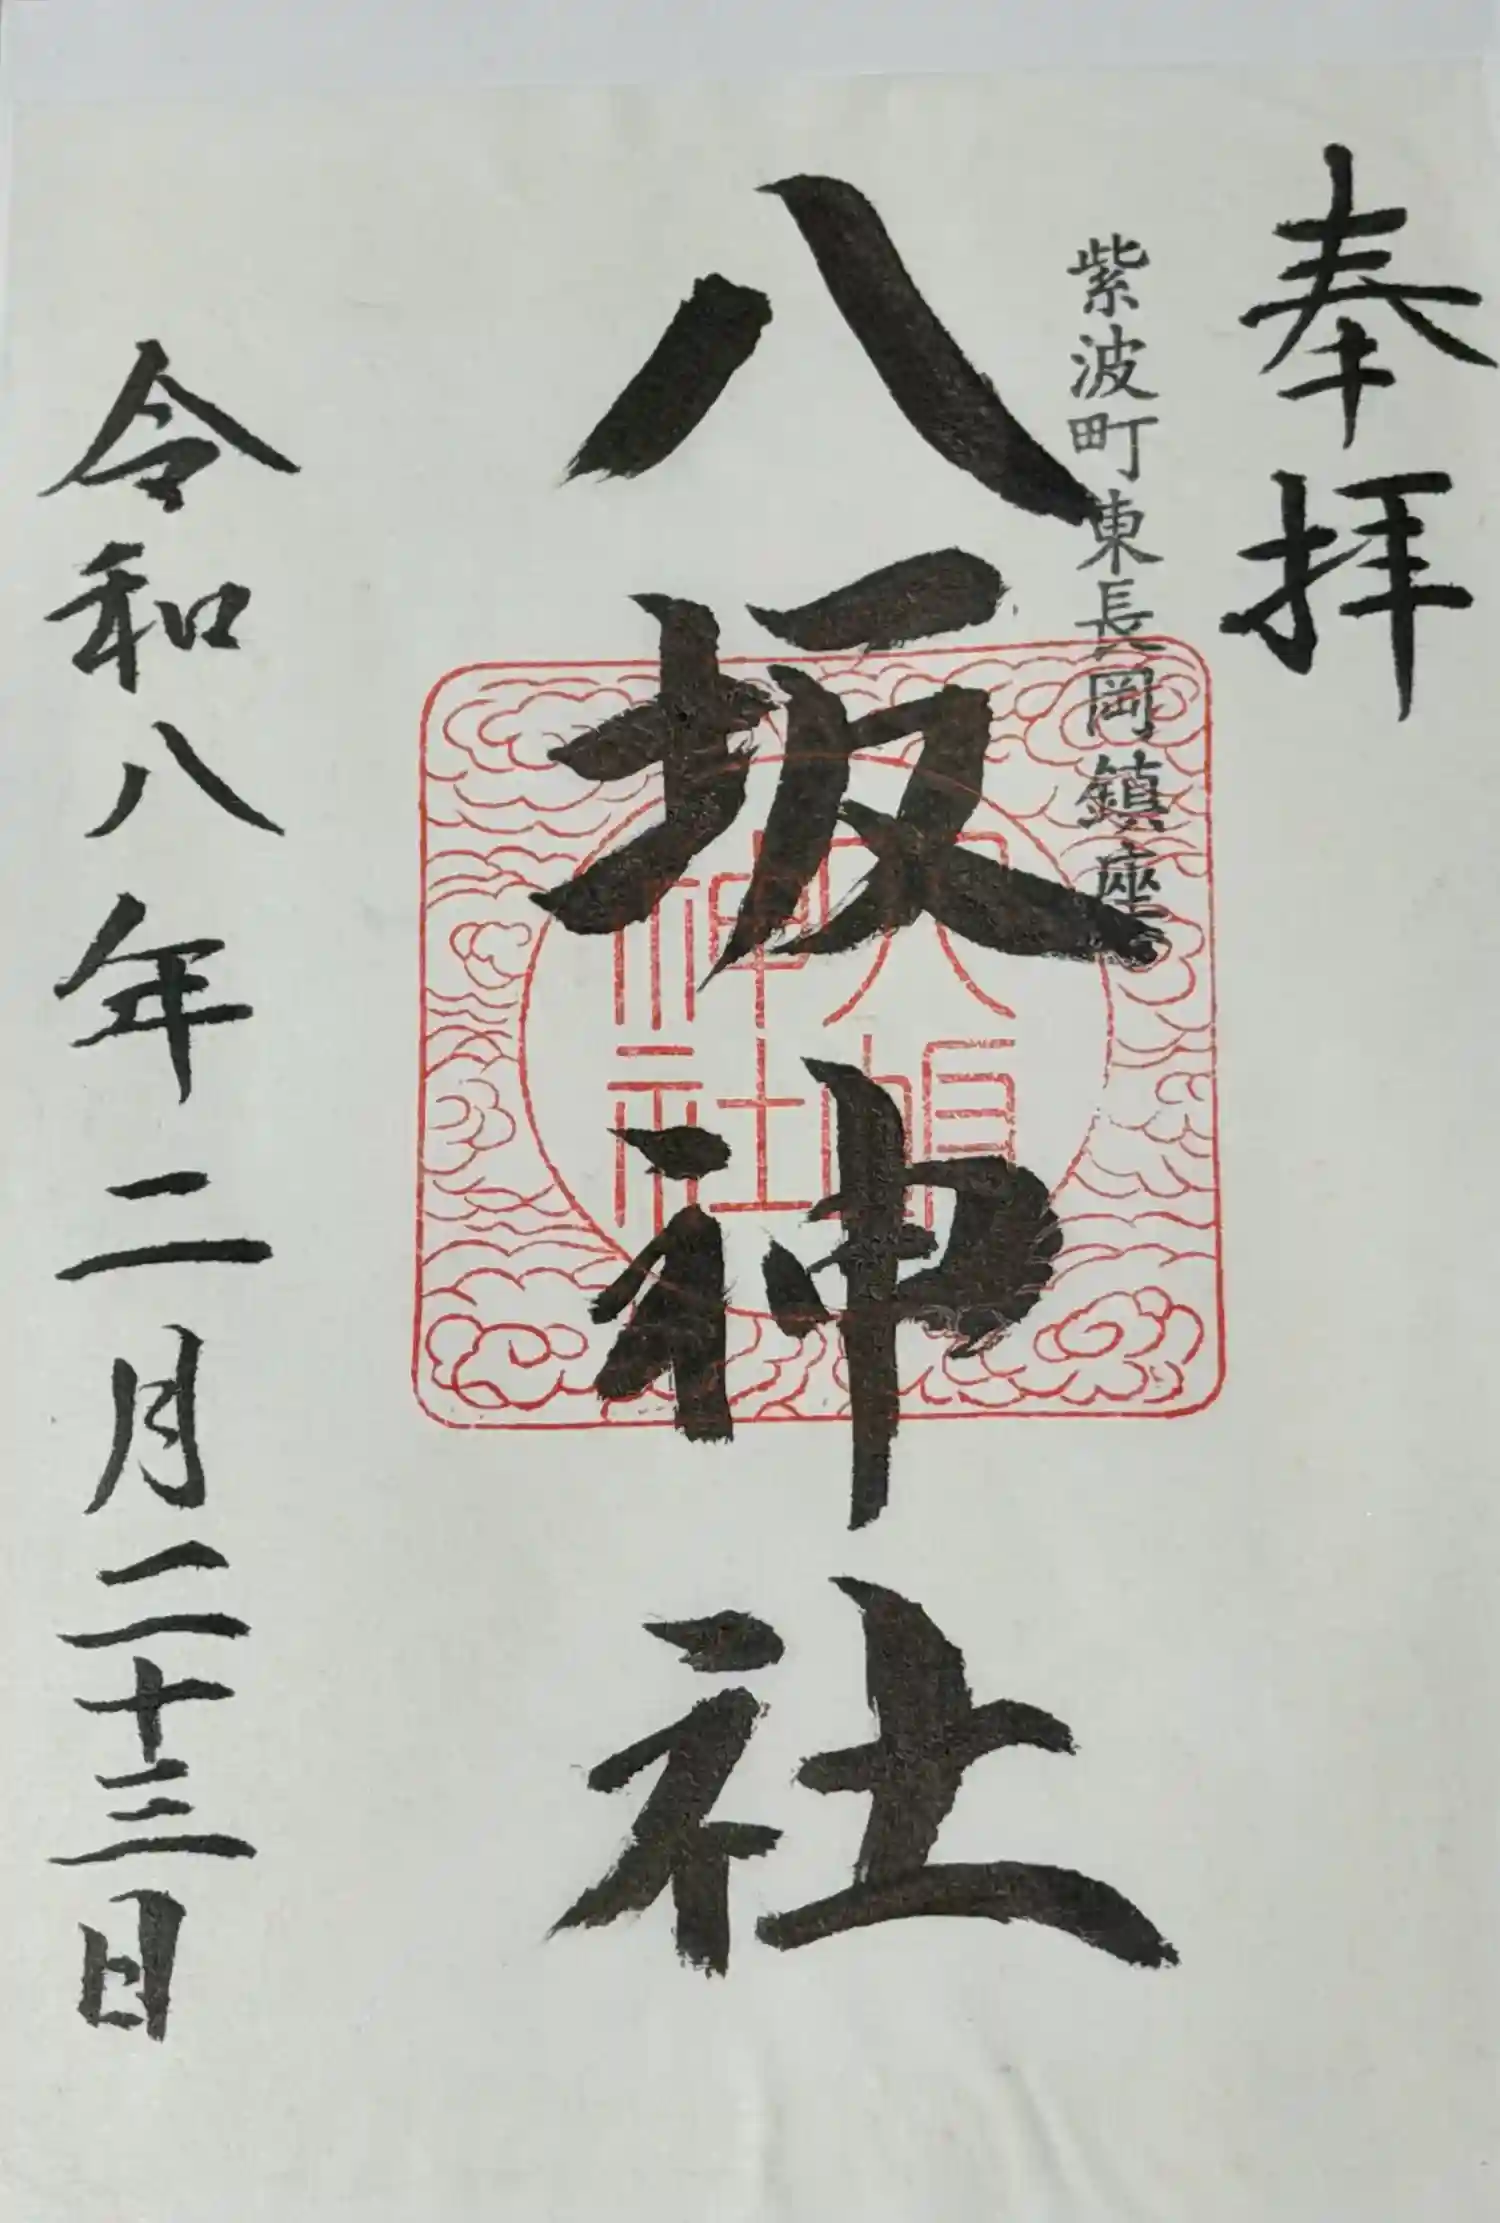 奉拝
紫波町東長岡鎮座
八坂神社
八坂
神社
令和八年二月二十三日